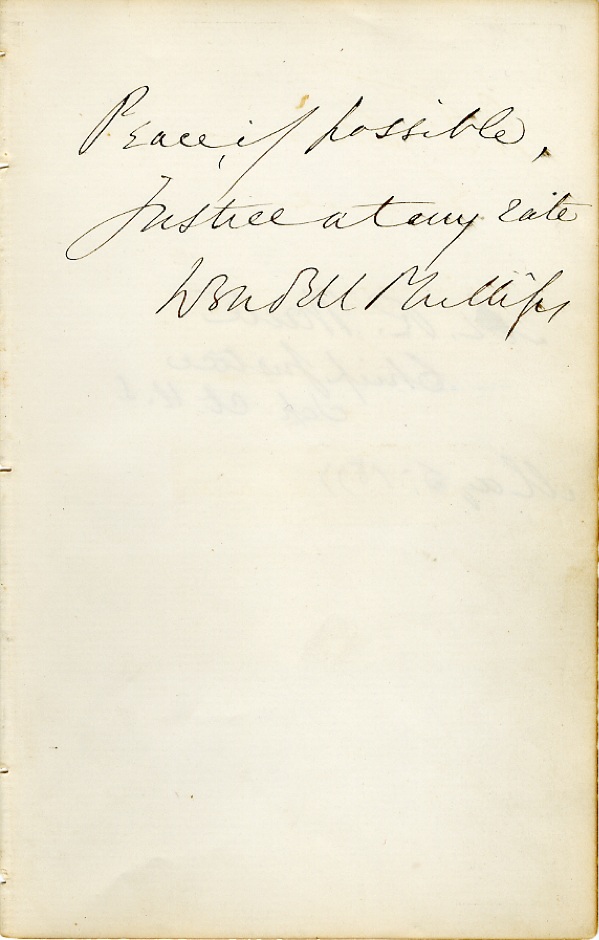 Peace, if possible,
Justice at any rate
Wendell Phillips